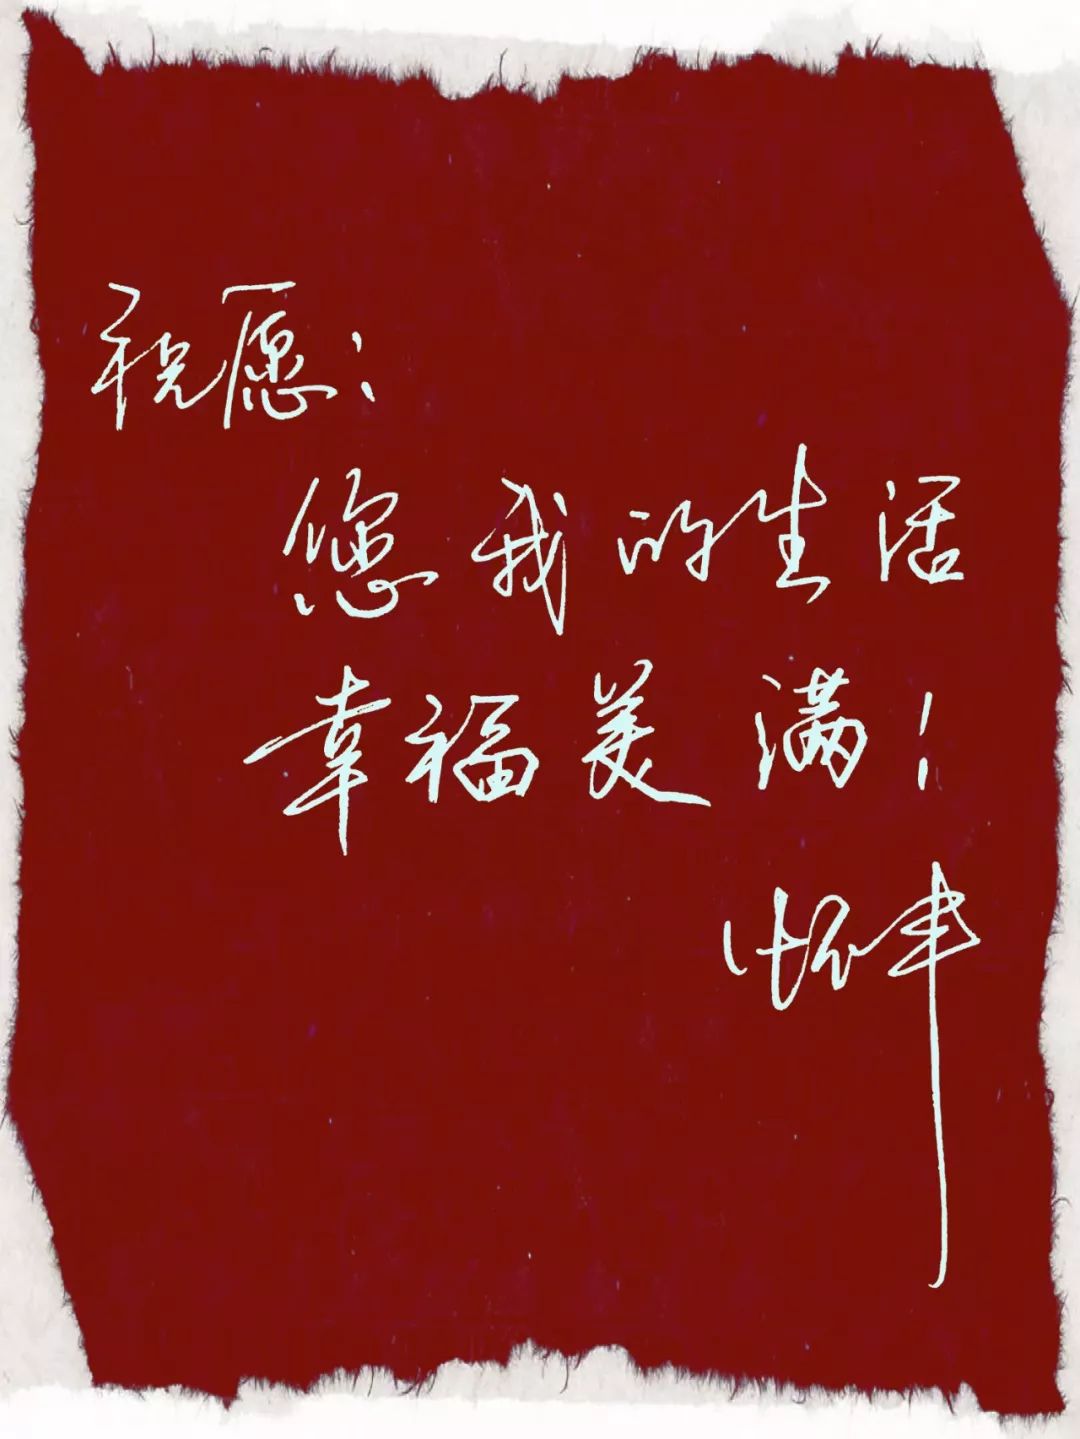 祝愿：
您我的生活
幸福美满！
怀丰